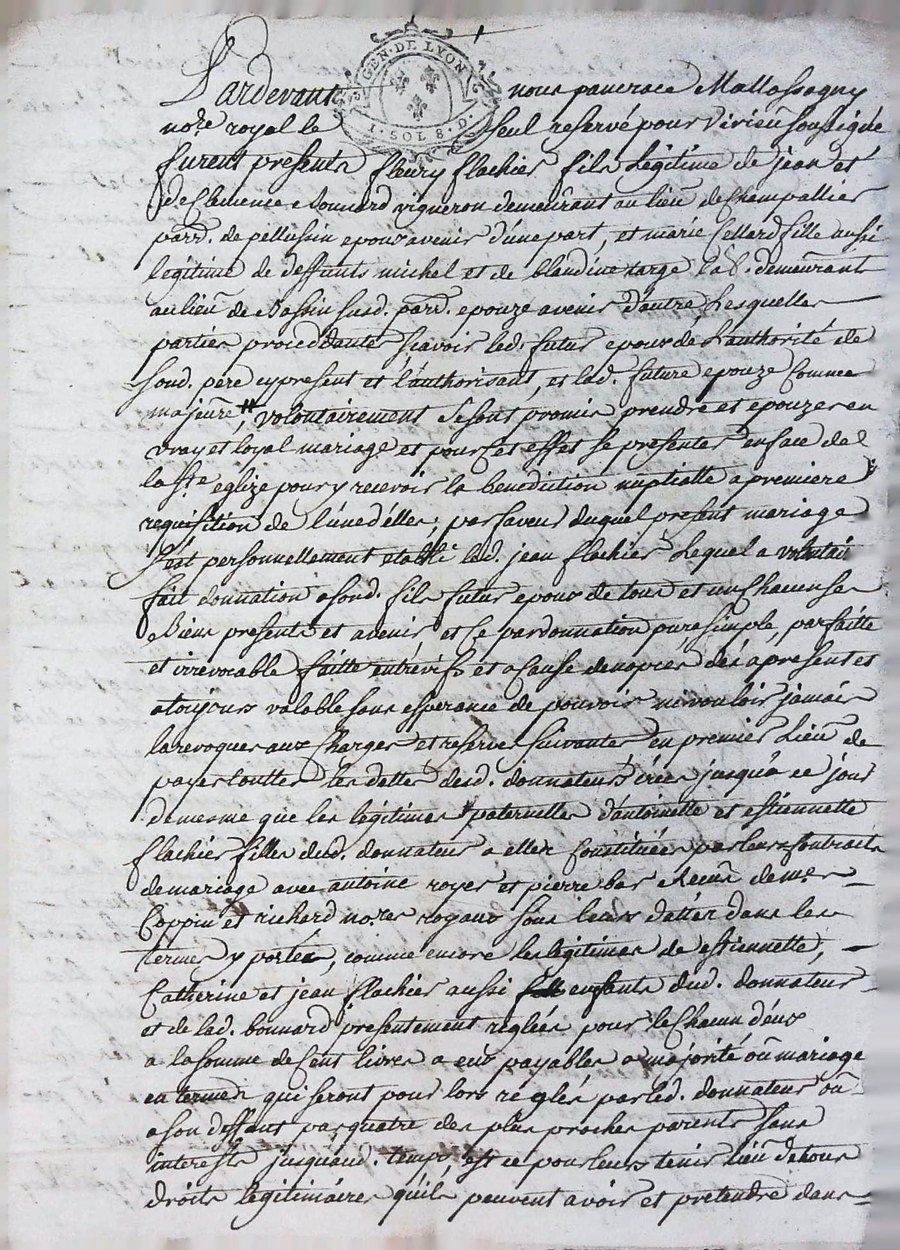 GEN. DE LYON
1. SOL 8. D.
Pardevant nous pancrace Mallassagny
nore royal le seul reservé pour Virieu soussigné
furent presents fleury flachier fils légitime de jean et
de Clemence bonnard vigneron demeurant au lieu de Champallier
parr. de pellussin epoux avenir d'une part, et marie Cellard fille aussi
legitime de deffunts michel et de blandine targe lad. demeurante
au lieu de Bassin susd. parr. epouze avenir d'autre Lesquelles
parties proceddantes scavoir led. futur epoux de L'authorité de
sond. pere cy present et l'authorisant, et lad. future epouze Comme
majeure, volontairement se sont promis prendre et epouzer en
vray et loyal mariage et pour cet effet se presenter en face de
la Ste eglize pour y recevoir la benediction nuptialle a premiere
requisition de l'une d'elles, par faveur duquel present mariage
s'est personnellement etabli led. jean flachier Lequel a volontair
fait donnation a sond. fils futur epoux de tous et un Chacun ses
Biens presents et avenir et ce par donnation pure simple, parfaitte
et irrevocable faitte entrevifs et a Cause de nopces dès a present et
a toujours valable sans esperance de pouvoir ni vouloir jamais
la revoquer aux Charges et reserves suivantes en premier Lieu de
payer touttes les dettes dud. donnateur crées jusqu'à ce jour
de mesme que les légitimes paternelles d'antoinette et estiennette
flachier filles dud. donnateur a elles Constituées par leurs Contracts
de mariage avec antoine royer et pierre bas Receus de mes
Coppin et richard nores royaux sous leurs dattes dans les
termes y portés, comme encore les légitimes de estiennette,
Catherine et jean flachier aussi enfants dud. donnateur
et de lad. bonnard presentement réglées pour le Chacun d'eux
a la somme de Cent livres a eux payables a majorité ou mariage
en termes qui seront pour lors réglés par led. donnateur ou
a son deffaut par quatre des plus proches parents sans
interests jusquaud. temps et ce pour leurs tenir Lieu de tous
droits legitimaires qu'ils peuvent avoir et pretendre dans